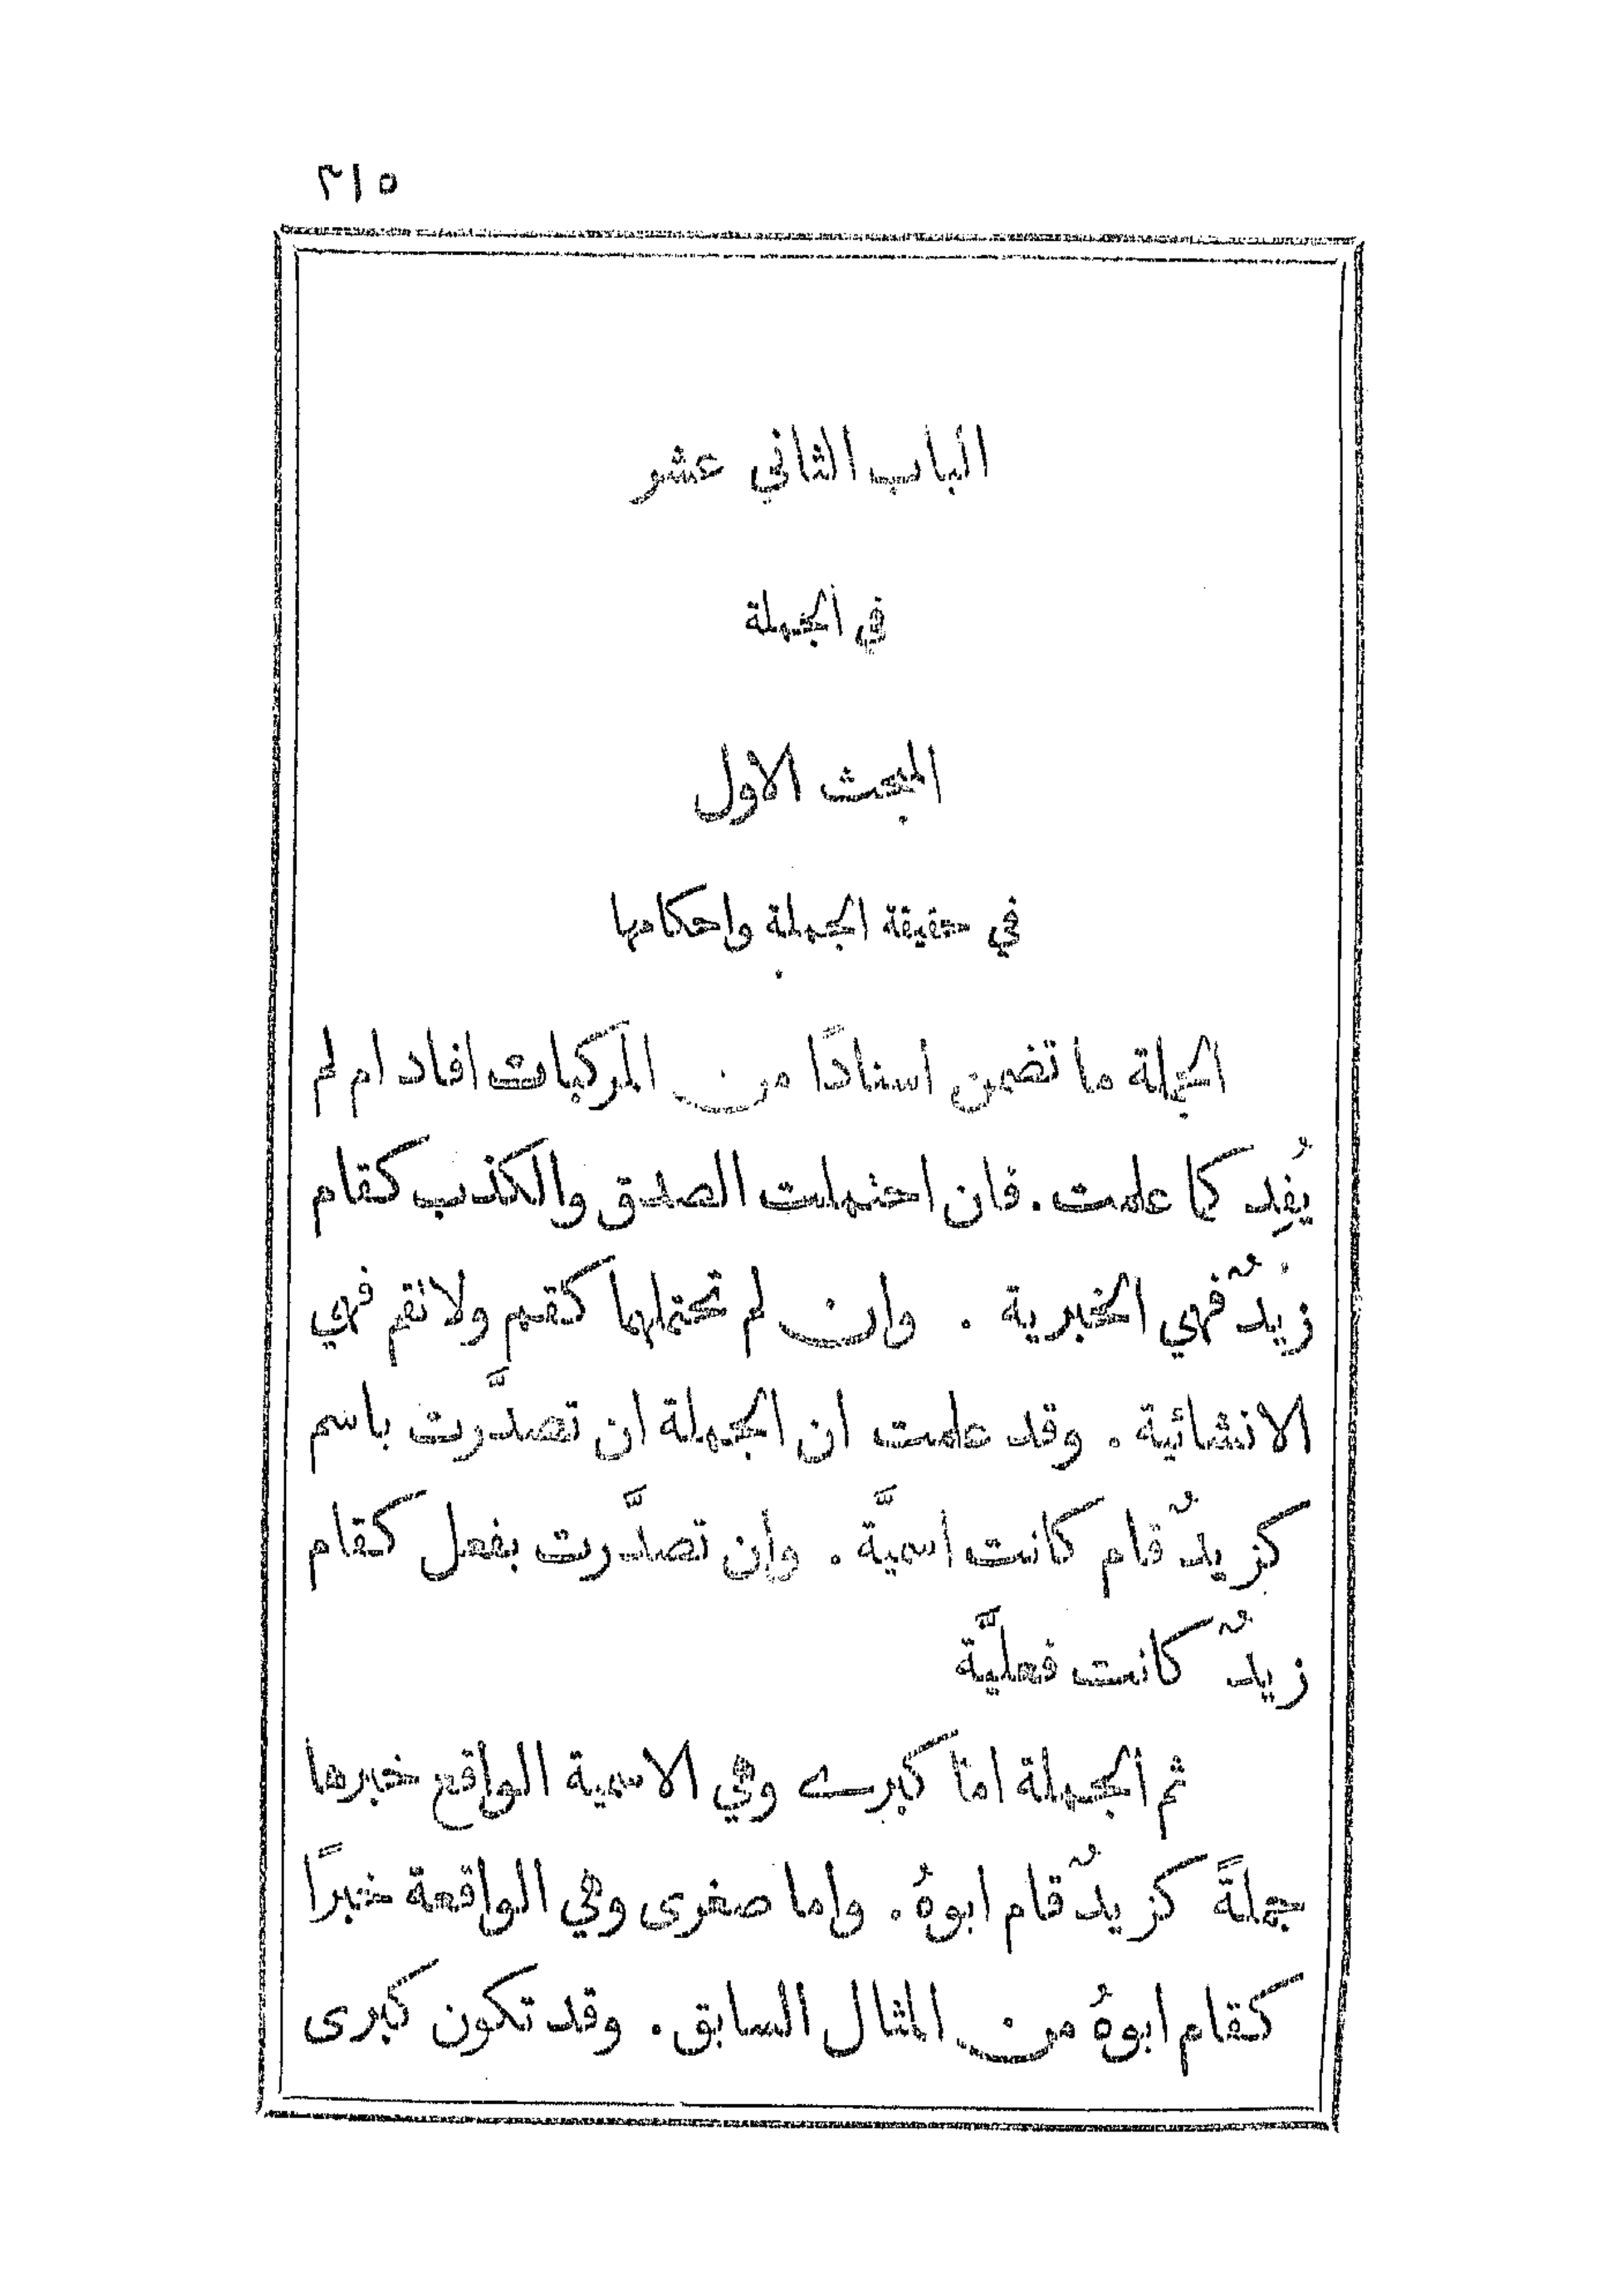 ٣١٥
الباب الثاني عشر
في الجملة
المبحث الاول
في حقيقة الجملة واحكامها
الجملة ما تضمن اسنادًا من المركبات افاد ام لم
يُفِد كما علمت. فان احتملت الصدق والكذب كقام
زيدٌ فهي الخبرية . وان لم تحتملهما كقم ولا تقم فهي
الانشائية . وقد علمت ان الجملة ان تصدَّرت باسم
كزيدٌ قام كانت اسميَّة . وان تصدَّرت بفعل كقام
زيدٌ كانت فعليَّة
ثم الجملة امّا كبرے وهي الاسمية الواقع خبرها
جملةً كزيدٌ قام ابوهُ . واما صغرى وهي الواقعة خبرًا
كقام ابوهُ من المثال السابق . وقد تكون كبرى